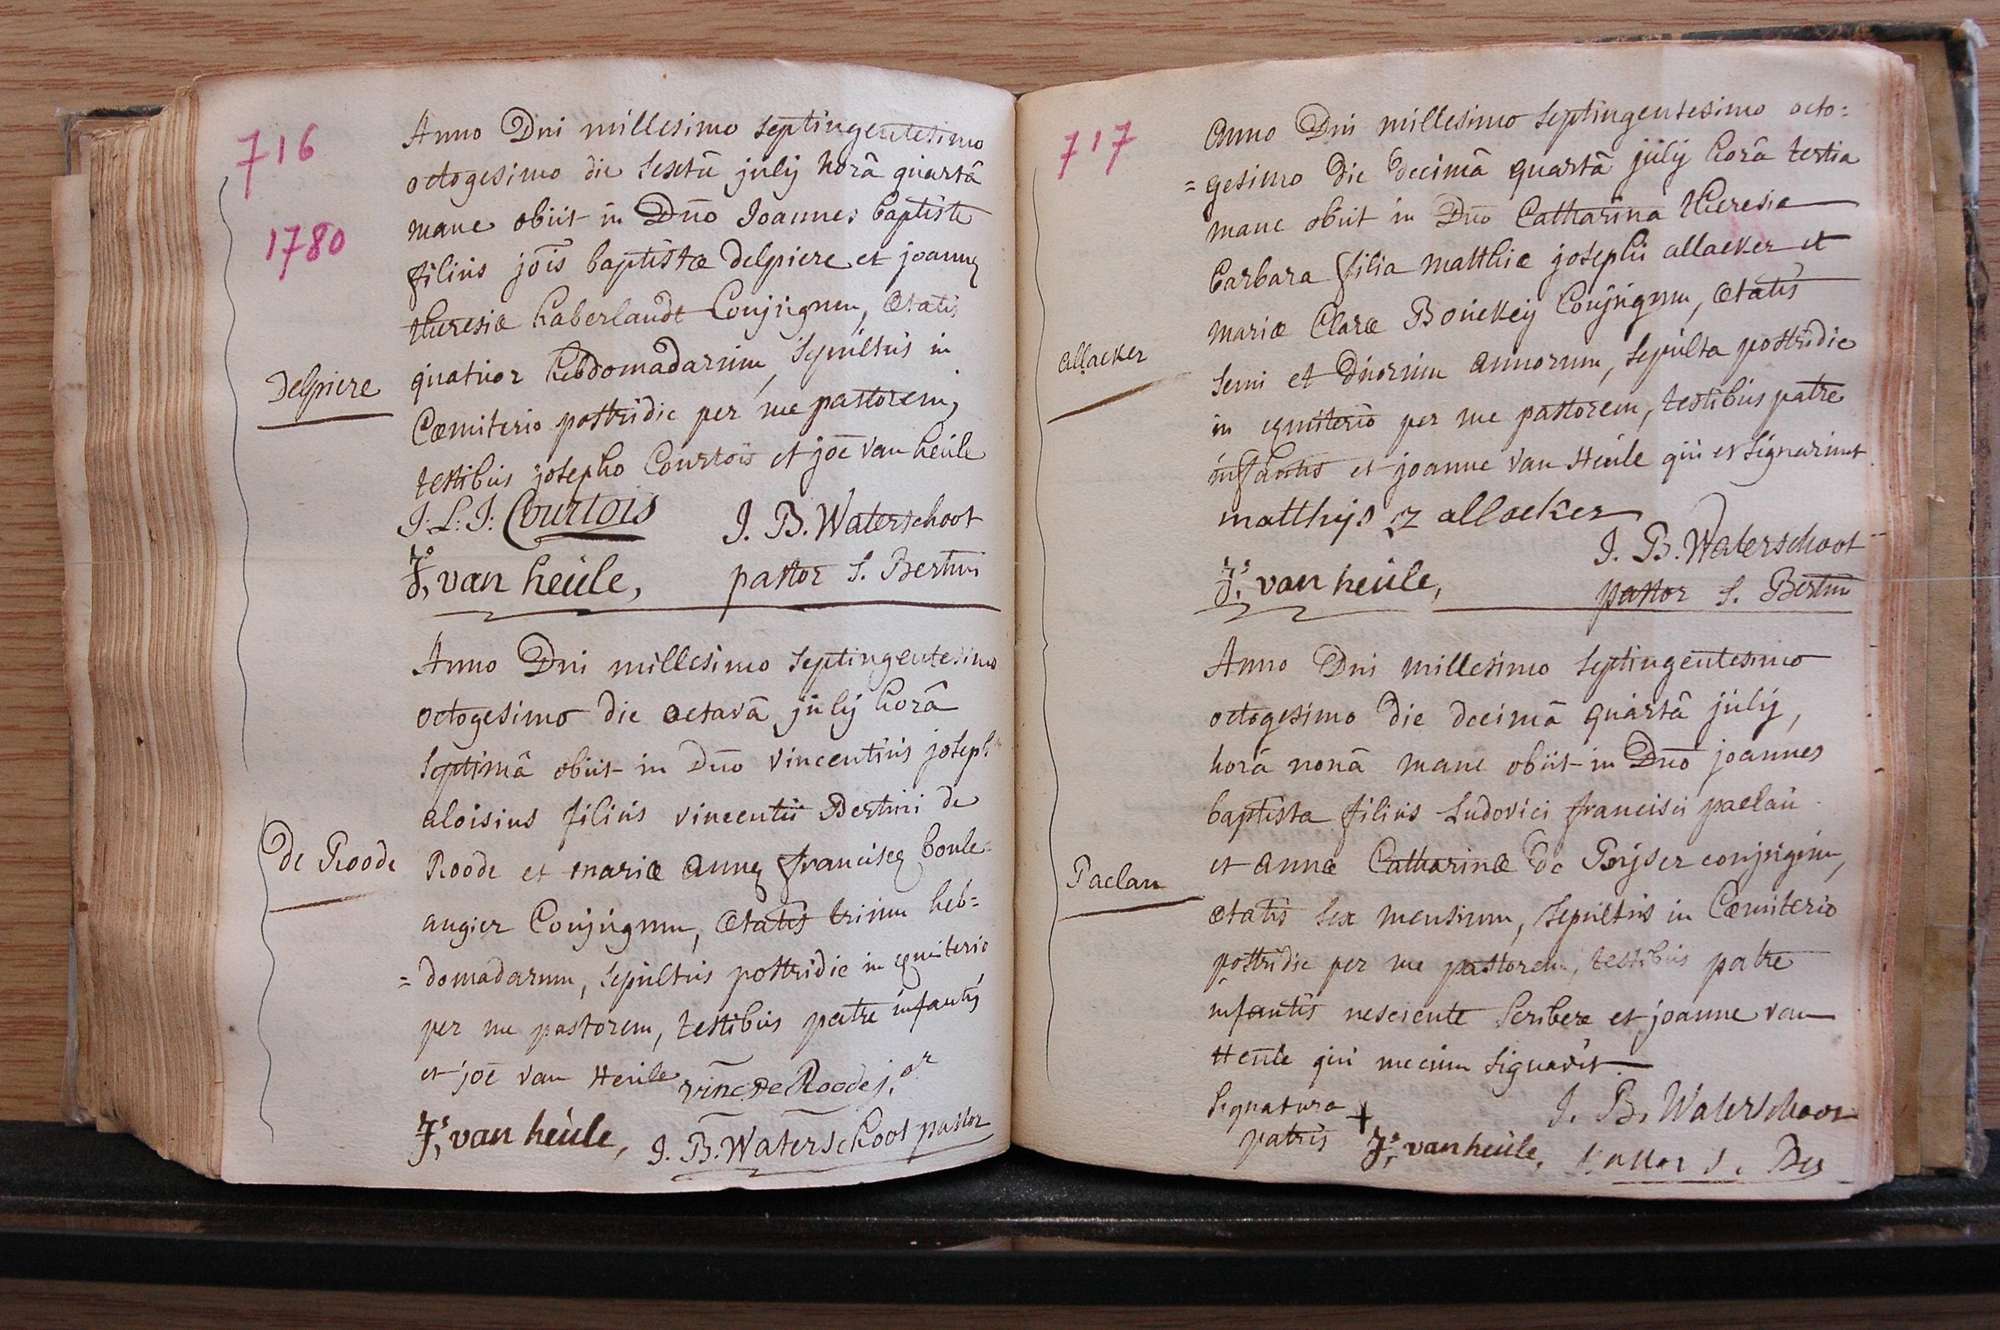 716
1780
Anno Dni millesimo septingentesimo
octogesimo die sextâ julij horâ quartâ
mane obiit in Dno Joannes baptista
filius jois baptistæ Delpiere et joannæ
theresiæ haberlandt Conjugum, ætatis
Delpiere
quatuor hebdomadarum, sepultus in
Cœmiterio postridie per me pastorem,
testibus josepho Courtois et joe van heule
J: L: J: Courtois J. B. Waterschoot
Js. van heule, pastor S. Bertini
Anno Dni millesimo septingentesimo
octogesimo die octavâ julij horâ
septimâ obiit in Dno vincentius joseph
aloisius filius vincentii Bertini de
de Roode
Roode et mariæ annæ franciscæ boule=
angier Conjugum, ætatis trium heb=
=domadarum, sepultus postridie in cœmiterio
per me pastorem, testibus patre infantis
et joe van Heule vinc De Roode j.or
Js. van heule, J. B. Waterschoot pastor
717
Anno Dni millesimo septingentesimo octo=
=gesimo die decimâ quartâ julij horâ tertia
mane obiit in Dno Catharina theresia
barbara filia matthiæ josephi allacker et
mariæ Claræ Bouckeij Conjugum, ætatis
allacker
semi et duorum annorum, sepulta postridie
in cœmiterio per me pastorem, testibus patre
infantis et joanne van Heule qui et signarunt
matthijs allacker
J. B. Waterschoot
Js. van heule, pastor S. Bertini
Anno Dni millesimo septingentesimo
octogesimo die decimâ quartâ julij,
horâ nonâ mane obiit in Dno joannes
baptista filius Ludovici francisci paelau
et annæ Catharinæ De Puijser conjugum,
Paelau
ætatis sex mensium, sepultus in Cœmiterio
postridie per me pastorem, testibus patre
infantis nesciente scribere et joanne van
Heule qui mecum signavit
Signatura + J. B. Waterschoot
patris Js. van heule, pastor S. Ber